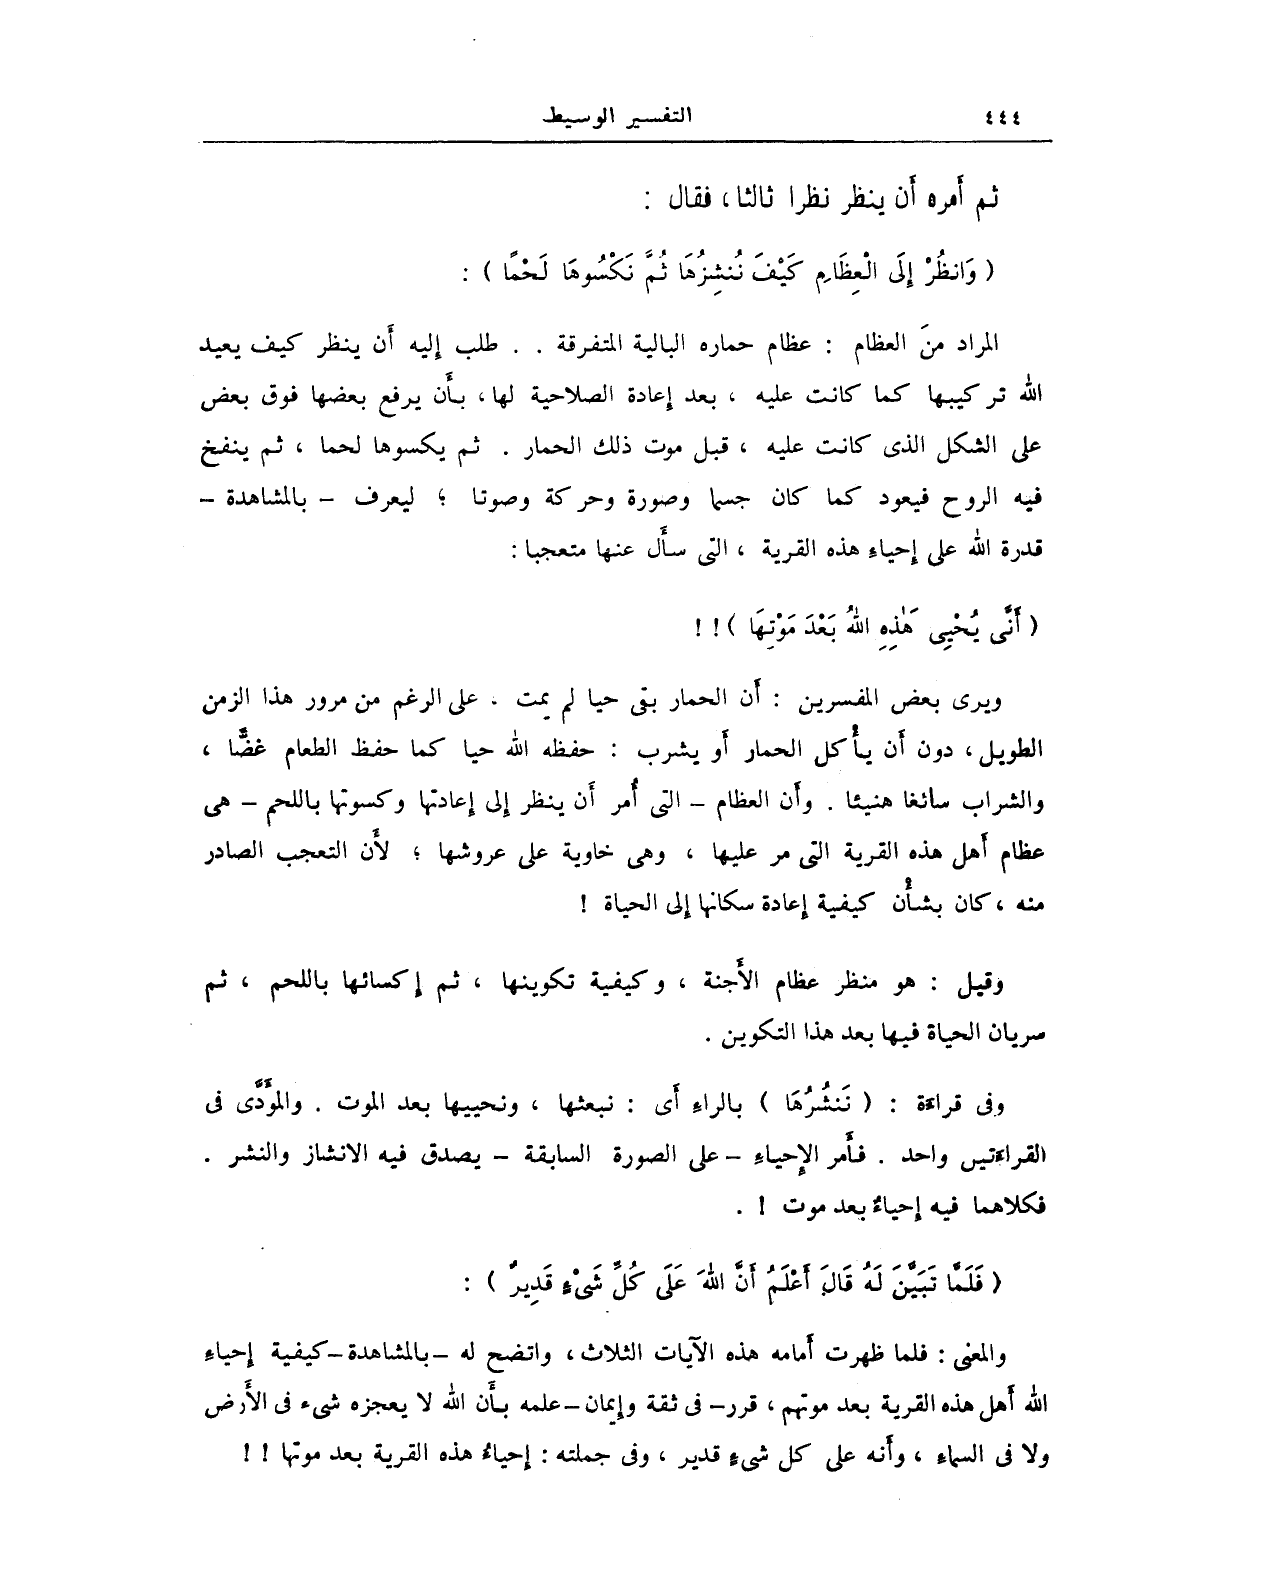 ٤٤٤ التفسير الوسيط
ثم أمره أن ينظر نظرا ثالثا، فقال :
( وَانظُرْ إِلَى الْعِظَامِ كَيْفَ نُنشِزُهَا ثُمَّ نَكْسُوهَا لَحْمًا ) :
المراد منَ العظام : عظام حماره البالية المتفرقة . . طلب إليه أن ينظر كيف يعيد
الله تركيبها كما كانت عليه ، بعد إعادة الصلاحية لها، بأن يرفع بعضها فوق بعض
على الشكل الذى كانت عليه ، قبل موت ذلك الحمار . ثم يكسوها لحما ، ثم ينفخ
فيه الروح فيعود كما كان جسما وصورة وحركة وصوتا ؛ ليعرف – بالمشاهدة –
قدرة الله على إحياء هذه القرية ، التى سأل عنها متعجبا :
( أَنَّى يُحْيِى هَٰذِهِ اللهُ بَعْدَ مَوْتِهَا ) ! !
ويرى بعض المفسرين : أن الحمار بقى حيا لم يمت . على الرغم من مرور هذا الزمن
الطويل، دون أن يأكل الحمار أو يشرب : حفظه الله حيا كما حفظ الطعام غضًّا ،
والشراب سائغا هنيئا . وأن العظام – التى أُمر أن ينظر إلى إعادتها وكسوتها باللحم – هى
عظام أهل هذه القرية التى مر عليها ، وهى خاوية على عروشها ؛ لأن التعجب الصادر
منه ، كان بشأن كيفية إعادة سكانها إلى الحياة !
وقيل : هو منظر عظام الأجنة ، وكيفية تكوينها ، ثم إكسائها باللحم ، ثم
سريان الحياة فيها بعد هذا التكوين .
وفى قراءة : ( نَنشُرُهَا ) بالراء أى : نبعثها ، ونحييها بعد الموت . والمؤدَّى فى
القراءتين واحد . فأمر الإحياء – على الصورة السابقة – يصدق فيه الانشاز والنشر .
فكلاهما فيه إحياءٌ بعد موت ! .
( فَلَمَّا تَبَيَّنَ لَهُ قَالَ أَعْلَمُ أَنَّ اللهَ عَلَى كُلِّ شَىْءٍ قَدِيرٌ ) :
والمعنى : فلما ظهرت أمامه هذه الآيات الثلاث، واتضح له – بالمشاهدة – كيفية إحياء
الله أهل هذه القرية بعد موتهم ، قرر – فى ثقة وإيمان – علمه بأن الله لا يعجزه شىء فى الأرض
ولا فى السماء ، وأنه على كل شىء قدير ، وفى جملته : إحياءُ هذه القرية بعد موتها ! !